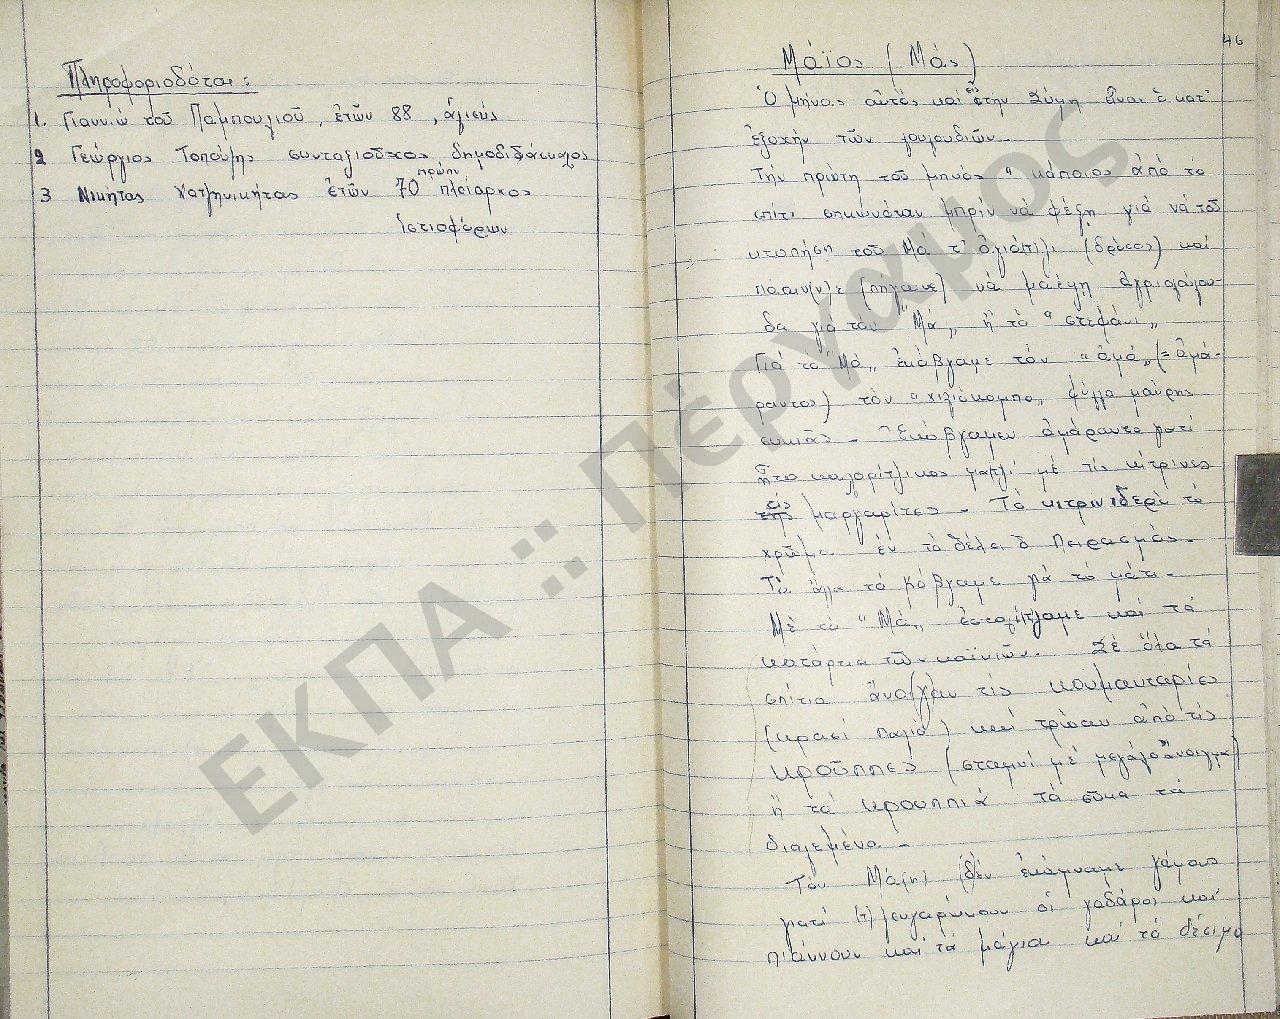 Πληροφοριοδόται:
1. Γιαννιώ τοῦ Παμπουλιοῦ, ἐτῶν 88, ἁλιεύς
2 Γεώργιος Τοπούζης συνταξιοῦχος δημοδιδάσκαλος
3 Νικήτας Χατζηνικήτας ἐτῶν 70 πρώην πλοίαρχος
ἱστιοφόρων
46
Μάϊος (Μάς)
Ὁ μήνας αὐτός καί εἰς στήν Σύμη εἶναι ὁ κατ'
ἐξοχήν τῶν λουλουδιῶν.
Τήν πρώτη τοῦ μηνός κάποιος ἀπό τό
σπίτι σηκώνόταν πρίν νά φέξη γιά νά τοῦ
κτυπήση τοῦ Μᾶ τ' (δρόσος) καί
πάαιν(ν)ε (πήγαινε) νά μαέψη ἀγριολούλου-
δα γιά τόν "Μά„ ἤ τό "στεφάνι„
Γιά τό "Μά„ ἐκόβγαμε τόν "ἀμά„ (= ἀμά-
ραντος) τόν "χιλιόκομπο„ φύλλα μαύρης
συκιᾶς - Ἐκόβγαμεν ἀμάραντο γιατί
ἦτο καλορίζικος μαζί μέ τίς κίτρινες
τίς μαργαρίτες - Τό κιτρινιδερό τό
χρῶμα ἐν τό θέλει ὁ Πειρασμός.
Τά ἄλλα τά κόβγαμε γιά τό μάτι -
Μέ τό "Μά„ ἐστολίζαμε καί τά
κατάρτια τῶν καϊκιῶν. Σέ ὅλα τά
σπίτια ἄνο(γ)αν τίς κουμανταρίες
(κρασί παλιό) καί τρώαν ἀπό τίς
κροῦππες (σταμνί μέ μεγάλο ἄνοιγμα)
ἤ τά κρουππιά τά σῦκα τά
διαλεμένα -
Τόν Μά(η) (δ)έν ἐκάμναμε γάμους
γιατί (τ)ζευγαρώνουν οἱ γαδάροι καί
πιάννουν καί τά μάγια καί τό δέσιμο
ΕΚΠΑ :: Πέργαμος